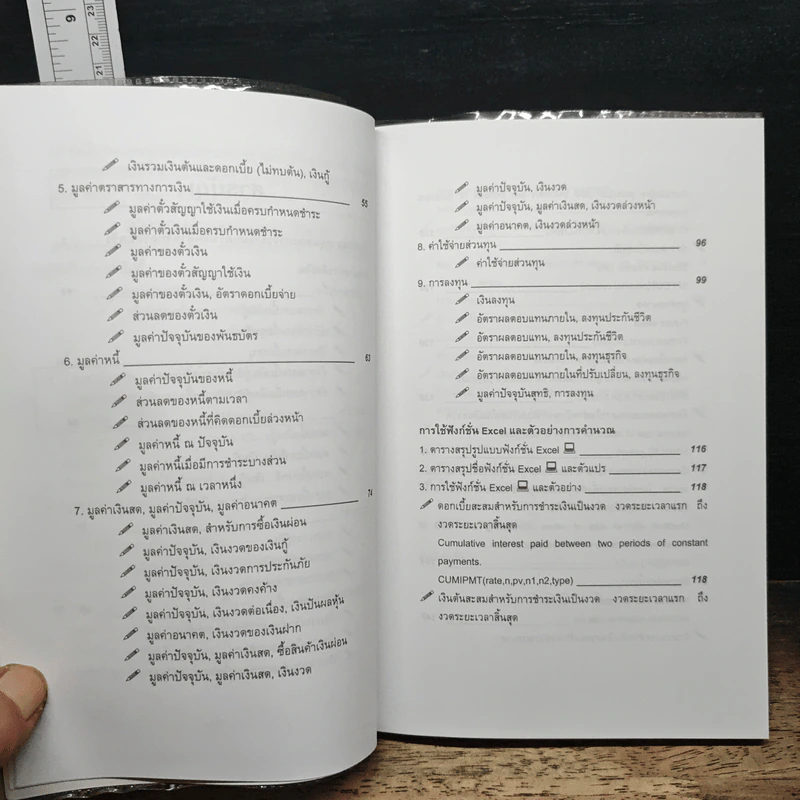 9
23
22
21
เงินรวมเงินต้นและดอกเบี้ย (ไม่ทบต้น), เงินกู้
5. มูลค่าตราสารทางการเงิน 55
มูลค่าตั๋วสัญญาใช้เงินเมื่อครบกำหนดชำระ
มูลค่าตั๋วเงินเมื่อครบกำหนดชำระ
มูลค่าของตั๋วเงิน
มูลค่าของตั๋วสัญญาใช้เงิน
มูลค่าของตั๋วเงิน, อัตราดอกเบี้ยจ่าย
ส่วนลดของตั๋วเงิน
มูลค่าปัจจุบันของพันธบัตร
6. มูลค่าหนี้ 63
มูลค่าปัจจุบันของหนี้
ส่วนลดของหนี้ตามเวลา
ส่วนลดของหนี้ที่คิดดอกเบี้ยล่วงหน้า
มูลค่าหนี้ ณ ปัจจุบัน
มูลค่าหนี้เมื่อมีการชำระบางส่วน
มูลค่าหนี้ ณ เวลาหนึ่ง
7. มูลค่าเงินสด, มูลค่าปัจจุบัน, มูลค่าอนาคต 74
มูลค่าเงินสด, สำหรับการซื้อเงินผ่อน
มูลค่าปัจจุบัน, เงินงวดของเงินกู้
มูลค่าปัจจุบัน, เงินงวดการประกันภัย
มูลค่าปัจจุบัน, เงินงวดคงค้าง
มูลค่าปัจจุบัน, เงินงวดต่อเนื่อง, เงินปันผลหุ้น
มูลค่าอนาคต, เงินงวดของเงินฝาก
มูลค่าปัจจุบัน, มูลค่าเงินสด, ซื้อสินค้าเงินผ่อน
มูลค่าปัจจุบัน, มูลค่าเงินสด, เงินงวด
มูลค่าปัจจุบัน, เงินงวด
มูลค่าปัจจุบัน, มูลค่าเงินสด, เงินงวดล่วงหน้า
มูลค่าอนาคต, เงินงวดล่วงหน้า
8. ค่าใช้จ่ายส่วนทุน 96
ค่าใช้จ่ายส่วนทุน
9. การลงทุน 99
เงินลงทุน
อัตราผลตอบแทนภายใน, ลงทุนประกันชีวิต
อัตราผลตอบแทน, ลงทุนประกันชีวิต
อัตราผลตอบแทนภายใน, ลงทุนธุรกิจ
อัตราผลตอบแทนภายในที่ปรับเปลี่ยน, ลงทุนธุรกิจ
มูลค่าปัจจุบันสุทธิ, การลงทุน
การใช้ฟังก์ชั่น Excel และตัวอย่างการคำนวณ
1. ตารางสรุปรูปแบบฟังก์ชั่น Excel 116
2. ตารางสรุปชื่อฟังก์ชั่น Excel และตัวแปร 117
3. การใช้ฟังก์ชั่น Excel และตัวอย่าง 118
ดอกเบี้ยสะสมสำหรับการชำระเงินเป็นงวด งวดระยะเวลาแรก ถึง
งวดระยะเวลาสิ้นสุด
Cumulative interest paid between two periods of constant
payments.
CUMIPMT(rate,n,pv,n1,n2,type) 118
เงินต้นสะสมสำหรับการชำระเงินเป็นงวด งวดระยะเวลาแรก ถึง
งวดระยะเวลาสิ้นสุด